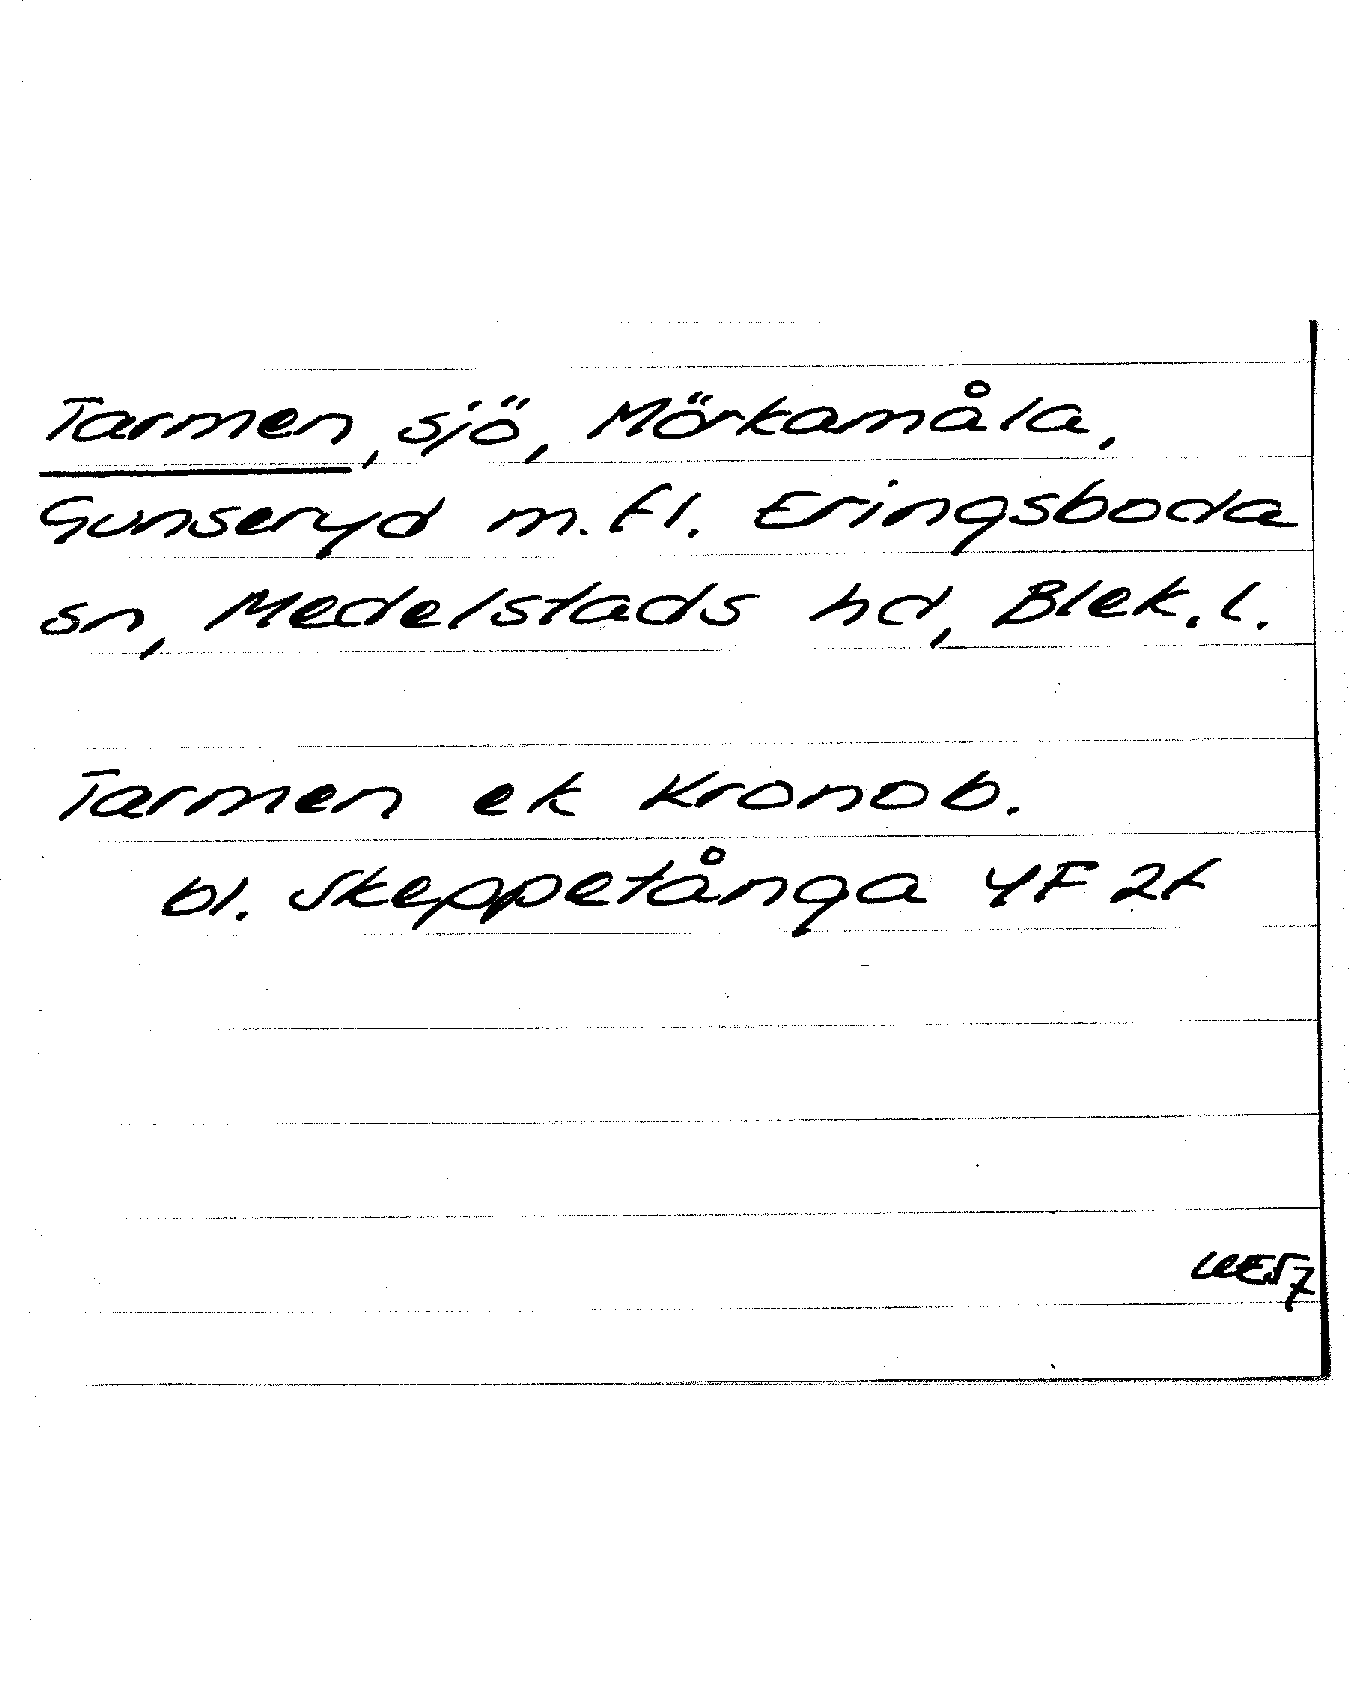 Tarmen, sjö, Mörkamåla,
Gunseryd m.fl. Eringsboda
sn, Medelstads hd, Blek. l.
Tarmen ek Kronob.
bl. Skeppetånga 4F 2f